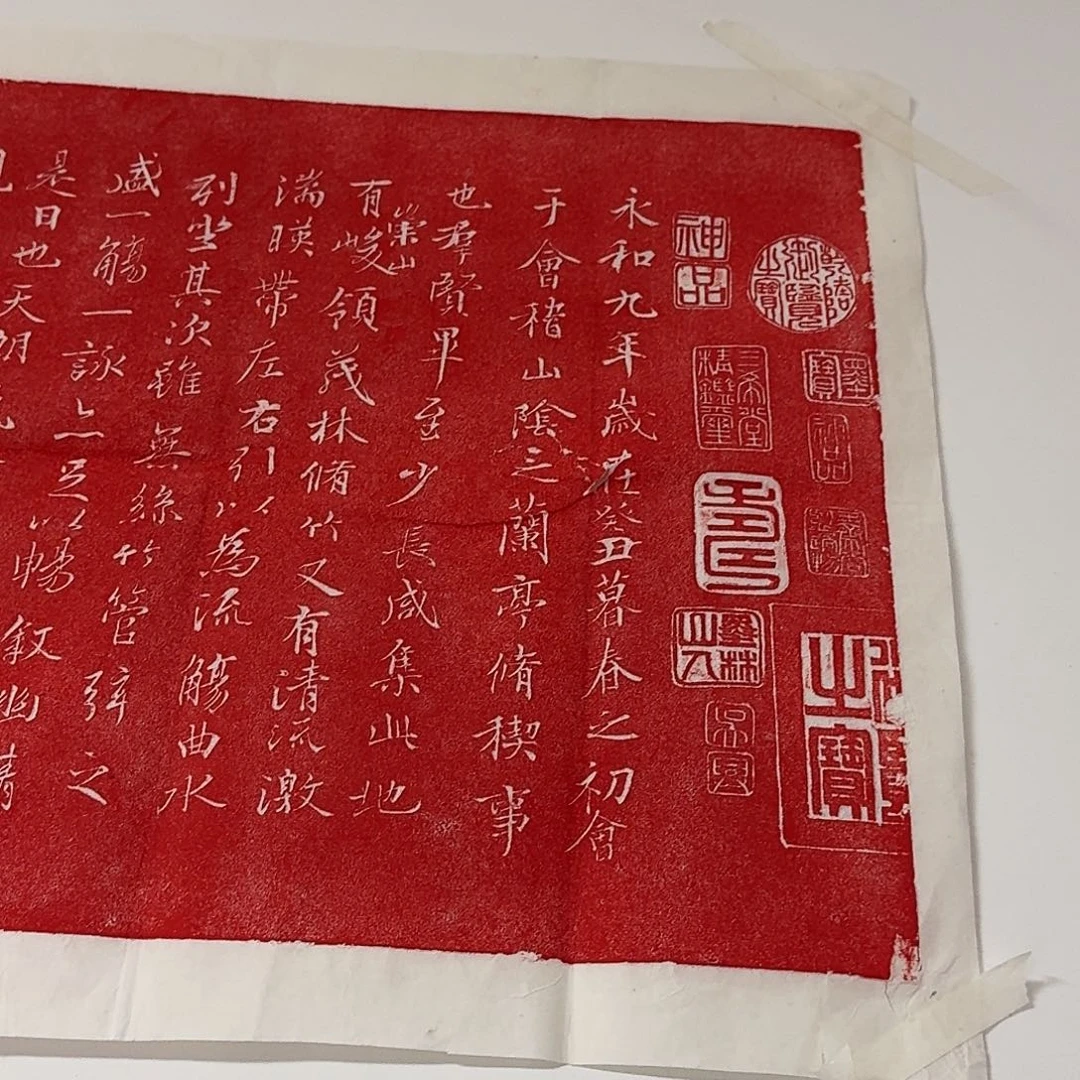 乾隆御覽之寶
神品
之寶
神品
三希堂精鑑璽
永和九年歲在癸丑暮春之初會
于會稽山陰之蘭亭脩稧事
也羣賢畢至少長咸集此地
有崇山峻領茂林脩竹又有清流激
湍暎帶左右引以為流觴曲水
列坐其次雖無絲竹管弦之
盛一觴一詠亦足以暢敘幽情
是日也天朗